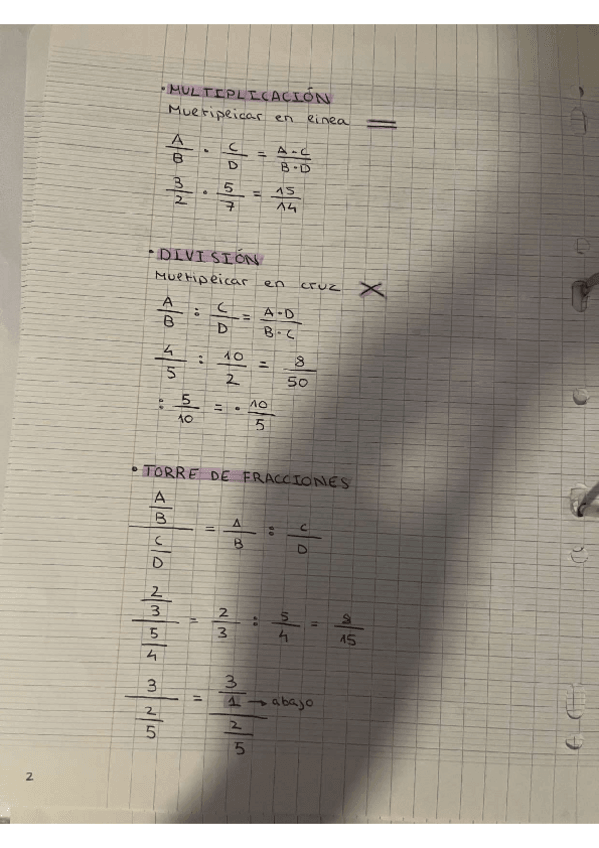 • MULTIPLICACIÓN
Multiplicar en línea =
A/B · C/D = A·C/B·D
3/2 · 5/7 = 15/14
• DIVISIÓN
Multiplicar en cruz ×
A/B : C/D = A·D/B·C
4/5 : 10/2 = 8/50
: 5/10 = · 10/5
• TORRE DE FRACCIONES
A/B / C/D = A/B : C/D
2/3 / 5/4 = 2/3 : 5/4 = 8/15
3 / 2/5 = 3/1 → abajo / 2/5
2